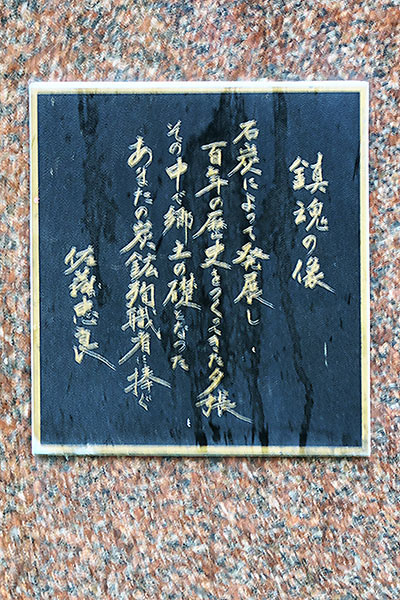 鎮魂の像
石炭によって発展し
百年の歴史をつくってきた夕張
その中で郷土の礎となった
あまたの炭鉱殉職者に捧ぐ
佐藤忠良